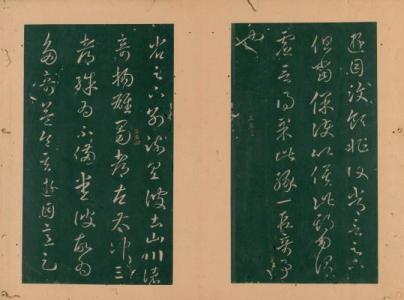 遊目汶領非復常言足下
但當保護以俟此期勿謂
虛言得果此緣一段奇事
也
省足下別疏具彼土山川諸
奇揚雄蜀都左太沖三
都殊為不備悉彼故為
多奇益令其遊目意足